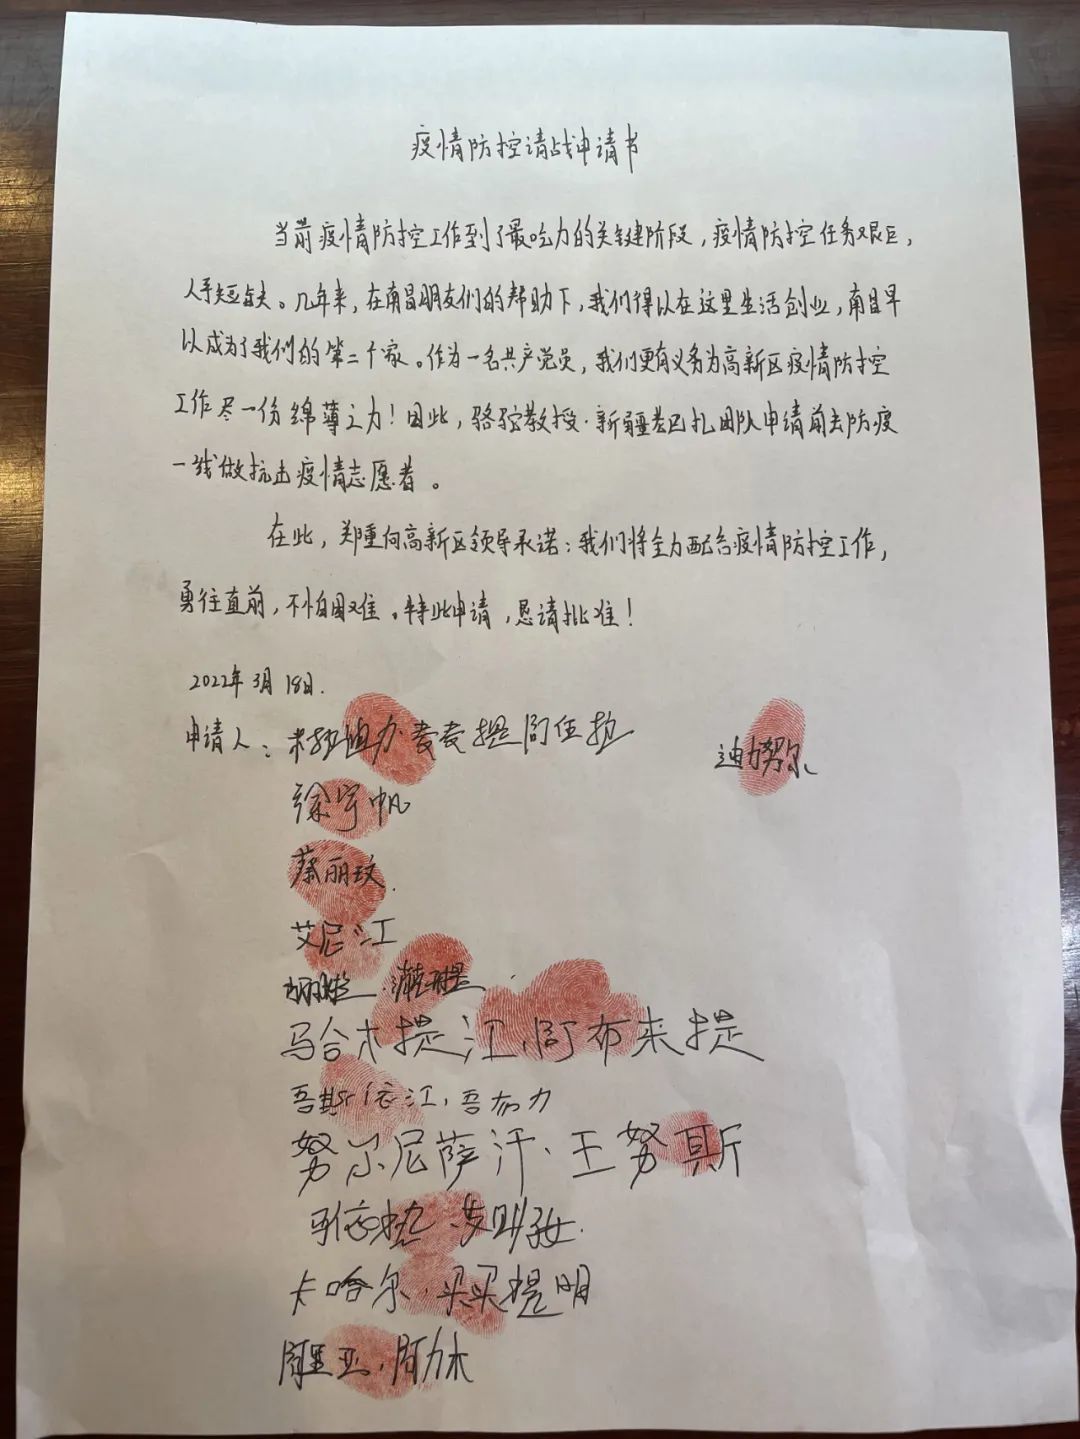 疫情防控请战申请书
当前疫情防控工作到了最吃力的关键建阶段，疫情防控任务艰巨，
人手短缺。几年来，在南昌朋友们的帮助下，我们得以在这里生活创业，南昌早
以成为了我们的第二个家。作为一名共产党员，我们更有义务为高新区疫情防控
工作尽一份绵薄之力！因此，骆驼教授·新疆巷巴扎团队申请前去防疫
一线做抗击疫情志愿者。
在此，郑重向高新区领导承诺：我们将全力配合疫情防控工作，
勇往直前，不怕困难。特此申请，恳请批准！
2022年3月18日.
申请人：
迪力努尔
徐宇帆
蔡丽玟.
艾尼江
马合木提江,阿布来提
吾斯依江,吾布力
努尔尼萨汗、王努斯
卡哈尔.买买提明
阿里亚,阿力木